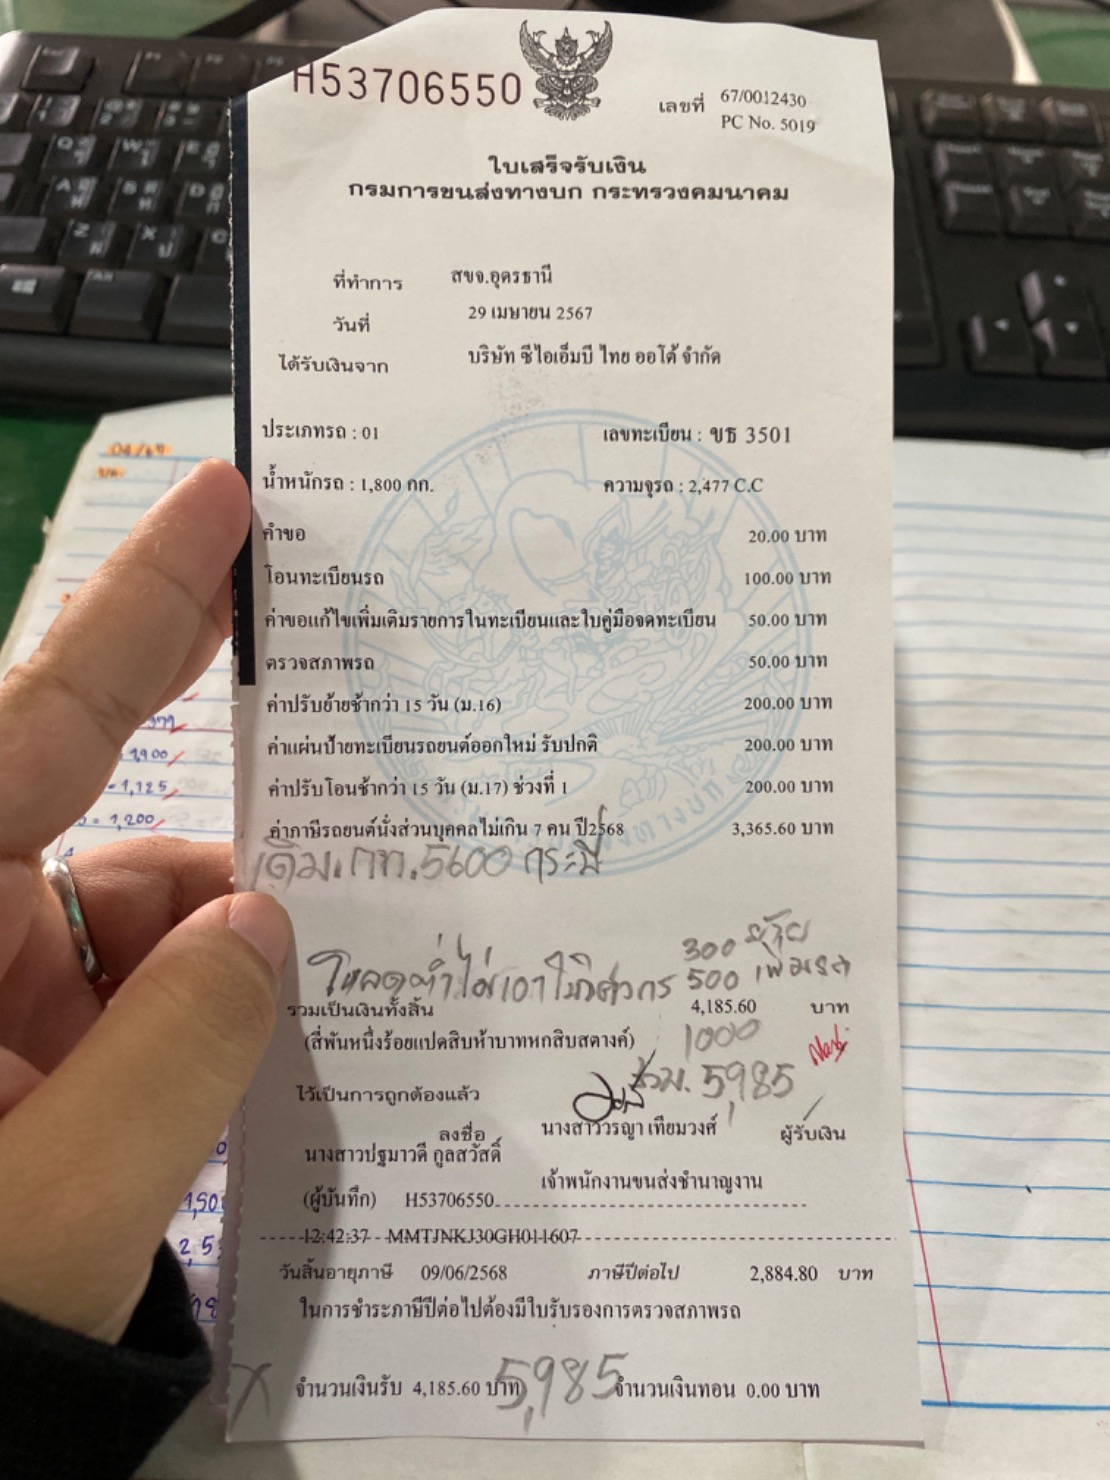 H53706550
เลขที่ 67/0012430
PC No. 5019
ใบเสร็จรับเงิน
กรมการขนส่งทางบก กระทรวงคมนาคม
ที่ทำการ สขจ.อุดรธานี
วันที่ 29 เมษายน 2567
ได้รับเงินจาก บริษัท ซีไอเอ็มบี ไทย ออโต้ จำกัด
ประเภทรถ : 01 เลขทะเบียน : ขธ 3501
น้ำหนักรถ : 1,800 กก. ความจุรถ : 2,477 C.C
คำขอ 20.00 บาท
โอนทะเบียนรถ 100.00 บาท
ค่าขอแก้ไขเพิ่มเติมรายการในทะเบียนและใบคู่มือจดทะเบียน 50.00 บาท
ตรวจสภาพรถ 50.00 บาท
ค่าปรับย้ายช้ากว่า 15 วัน (ม.16) 200.00 บาท
ค่าแผ่นป้ายทะเบียนรถยนต์ออกใหม่ รับปกติ 200.00 บาท
ค่าปรับโอนช้ากว่า 15 วัน (ม.17) ช่วงที่ 1 200.00 บาท
ค่าภาษีรถยนต์นั่งส่วนบุคคลไม่เกิน 7 คน ปี2568 3,365.60 บาท
เดิม.กท.5600 กระบี่
300 ย้าย
โหลดต่ำไม่เอาใบวิศวกร 500 เพิ่มรส
รวมเป็นเงินทั้งสิ้น 4,185.60 บาท
(สี่พันหนึ่งร้อยแปดสิบห้าบาทหกสิบสตางค์) 1000
รวม. 5,985
ไว้เป็นการถูกต้องแล้ว
ลงชื่อ นางสาววรญา เทียมวงศ์ ผู้รับเงิน
นางสาวปฐมาวดี กูลสวัสดิ์
เจ้าพนักงานขนส่งชำนาญงาน
(ผู้บันทึก) H53706550
12:42:37 MMTJNKJ30GH011607
วันสิ้นอายุภาษี 09/06/2568 ภาษีปีต่อไป 2,884.80 บาท
ในการชำระภาษีปีต่อไปต้องมีใบรับรองการตรวจสภาพรถ
จำนวนเงินรับ 4,185.60 บาท 5,985 จำนวนเงินทอน 0.00 บาท
1,900
1,125
= 1,200